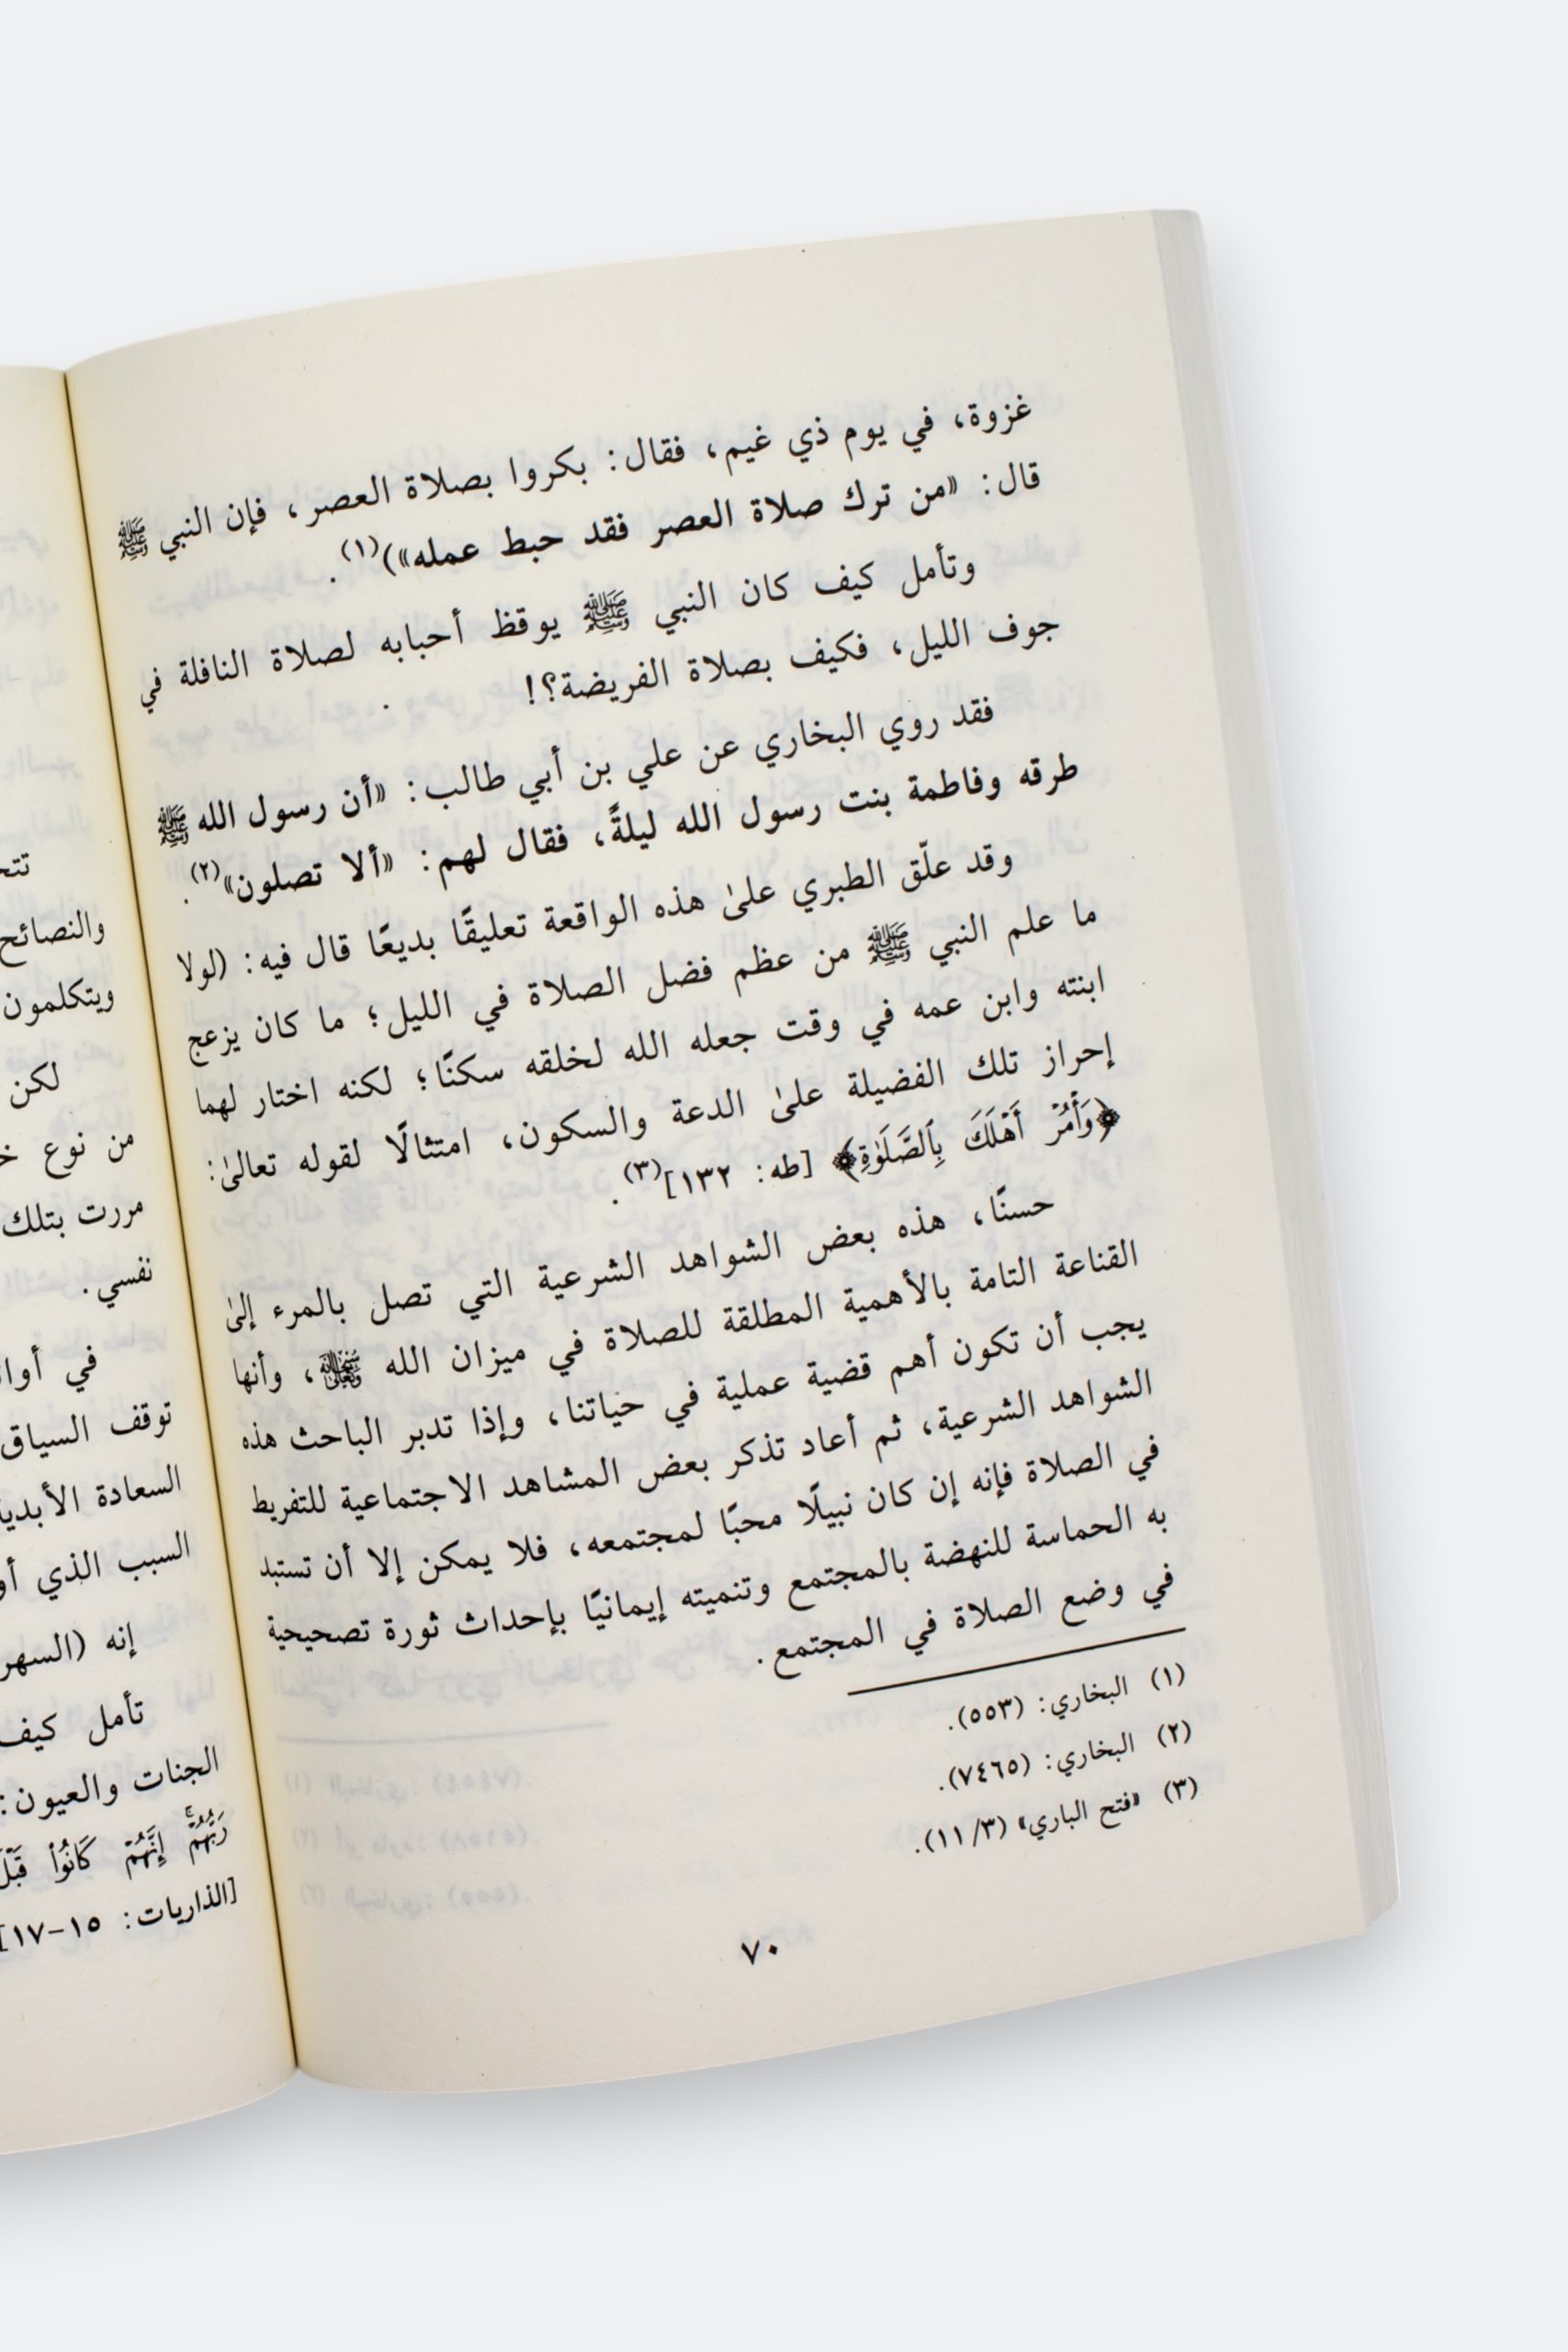 غزوة، في يوم ذي غيم، فقال: بكروا بصلاة العصر، فإن النبي ﷺ
قال: «من ترك صلاة العصر فقد حبط عمله»)(١).
وتأمل كيف كان النبي ﷺ يوقظ أحبابه لصلاة النافلة في
جوف الليل، فكيف بصلاة الفريضة؟!
فقد روي البخاري عن علي بن أبي طالب: «أن رسول الله ﷺ
طرقه وفاطمة بنت رسول الله ليلةً، فقال لهم: «ألا تصلون»(٢).
وقد علّق الطبري علىٰ هذه الواقعة تعليقًا بديعًا قال فيه: (لولا
ما علم النبي ﷺ من عظم فضل الصلاة في الليل؛ ما كان يزعج
ابنته وابن عمه في وقت جعله الله لخلقه سكنًا؛ لكنه اختار لهما
إحراز تلك الفضيلة علىٰ الدعة والسكون، امتثالًا لقوله تعالىٰ:
﴿وَأْمُرْ أَهْلَكَ بِٱلصَّلَوٰةِ﴾ [طه: ١٣٢](٣).
حسنًا، هذه بعض الشواهد الشرعية التي تصل بالمرء إلىٰ
القناعة التامة بالأهمية المطلقة للصلاة في ميزان الله سبحانه وتعالى، وأنها
يجب أن تكون أهم قضية عملية في حياتنا، وإذا تدبر الباحث هذه
الشواهد الشرعية، ثم أعاد تذكر بعض المشاهد الاجتماعية للتفريط
في الصلاة فإنه إن كان نبيلًا محبًا لمجتمعه، فلا يمكن إلا أن تستبد
به الحماسة للنهضة بالمجتمع وتنميته إيمانيًا بإحداث ثورة تصحيحية
في وضع الصلاة في المجتمع.
(١) البخاري: (٥٥٣).
(٢) البخاري: (٧٤٦٥).
(٣) «فتح الباري» (١١/٣).
٧٠
والنصائح
ويتكلمون
لكن
من نوع
مررت بتلك
نفسي.
في
توقف السياق
السعادة
السبب الذي
إنه (السهر
تأمل كيف
الجنات والعيون:
رَبُّهُمْ إِنَّهُمْ كَانُوا۟ قَبْلَ
[الذاريات: ١٥-١٧]